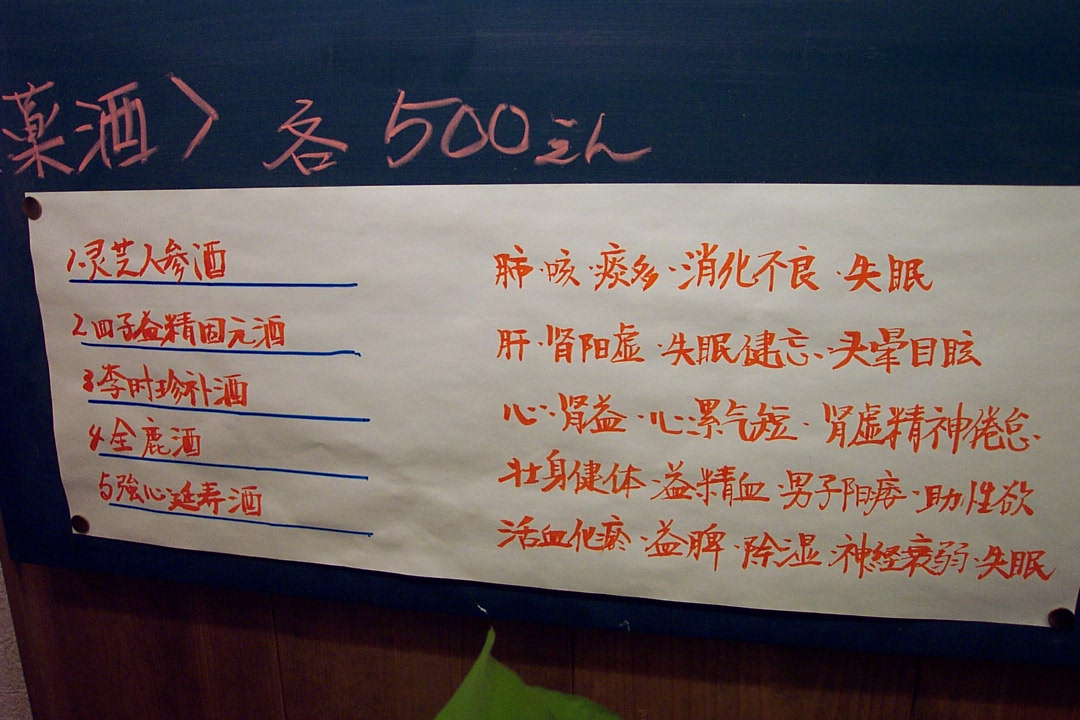 薬酒〉各500えん
1.灵芝人参酒 肺·咳·痰多·消化不良·失眠
2四子益精固元酒 肝·肾阳虚·失眠健忘、头晕目眩
3李时珍补酒 心·肾益·心累气短·肾虚精神倦怠·
4全鹿酒 壮身健体·益精血·男子阳痿·助性欲
5強心延寿酒 活血化瘀·益脾·除湿·神经衰弱·失眠